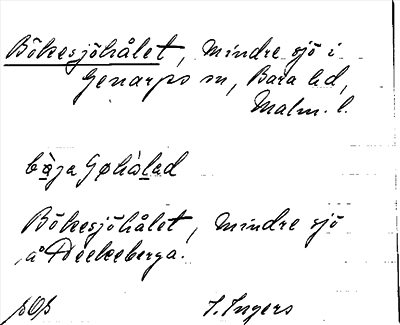 Bökesjöhålet, mindre sjö i
Genarps sn, Bara hd,
Malm. l.
Bökesjöhålet, mindre sjö
å Häckeberga.
I. Ingers